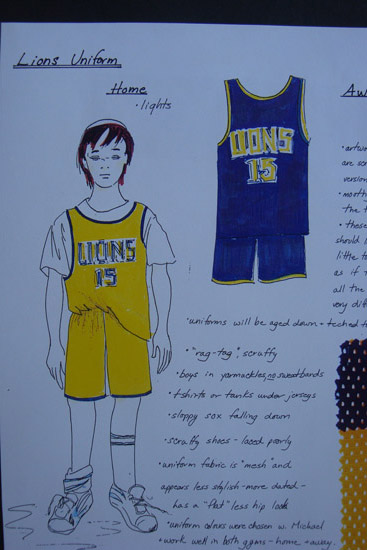 Lions Uniform
Home
• lights
Aw
LIONS
15
LIONS
15
• artwo
are scr
version
• mostly
the t
• those
should l
little t
as if
all the
very dif
• uniforms will be aged down + teched t
• "rag-tag", scruffy
• boys in yarmuckles, no sweatbands
• t-shirts or tanks under jerseys
• sloppy sox falling down
• scruffy shoes - laced poorly
• uniform fabric is "mesh" and
appears less stylish - more dated -
has a "flat" less hip look
• uniform colours were chosen w. Michael
• work well in both gyms - home + away.